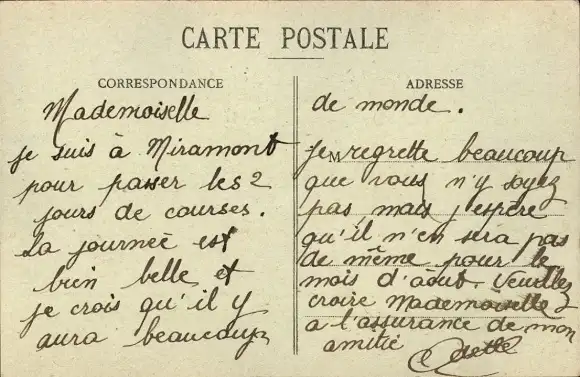 CARTE POSTALE
CORRESPONDANCE
Mademoiselle
je suis à Miramont
pour passer les 2
jours de courses.
La journeé est
bien belle et
je crois qu'il y
aura beaucoup
ADRESSE
de monde.
M
Je regrette beaucoup
que vous n'y soyez
pas mais j'espère
qu'il n'en sera pas
de même pour le
mois d'août. Veuillez
croire Mademoiselle
a l'assurance de mon
amitié Odette